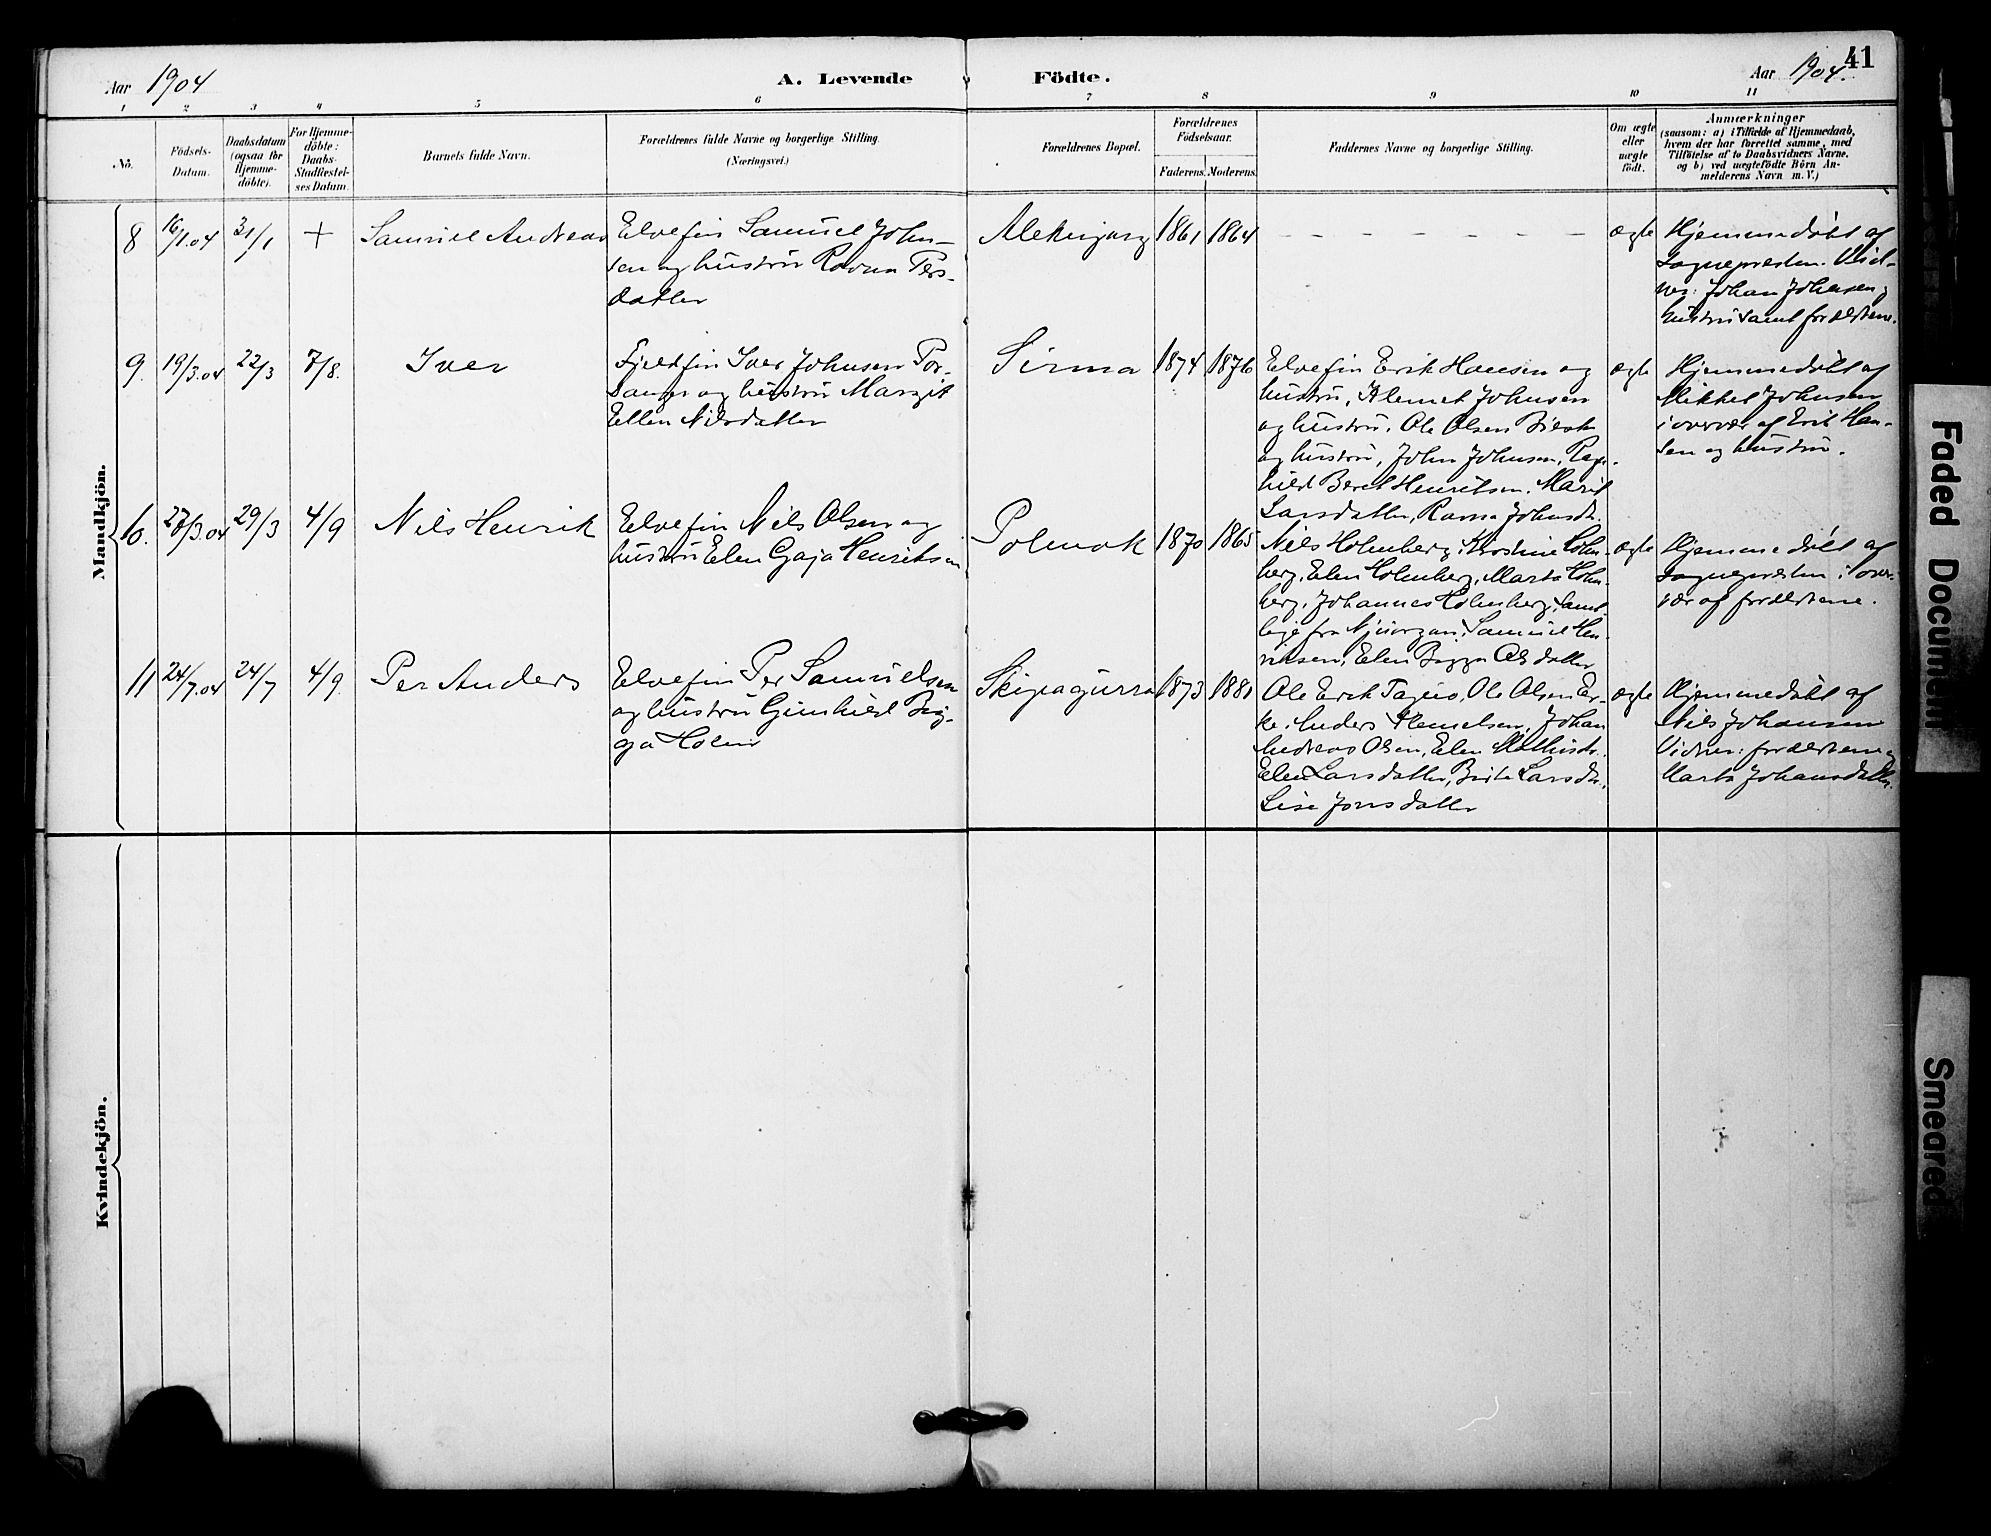 41
Aar 1904
A. Levende Födte.
Aar 1904.
1 2 3 4 5 6 7 8 9 10 11
No.
Födsels-
Datum.
Daabsdatum
(ogsaa for
Hjemme-
döbte).
For Hjemme-
döbte:
Daabs-
Stadfæstel-
ses Datum.
Barnets fulde Navn.
Forældrenes fulde Navne og borgerlige Stilling.
(Næringsvei.)
Forældrenes Bopæl.
Forældrenes
Födselsaar.
Faderens. Moderens.
Faddernes Navne og borgerlige Stilling.
Om ægte
eller
uægte
födt.
Anmærkninger
(saasom: a) i Tilfælde af Hjemmedaab,
hvem der har forrettet samme, med
Tilföielse af to Daabsvidners Navne.
og b) ved uægtefödte Börn An-
melderens Navn m. V.)
Mandkjön.
8 16/1.04 31/1 + Samuel Andreas
Elvefin Samuel John-
sen og hustru Ravna Pers-
datter
Aleknjarg 1861 1864 - - - - - - - - ægte
Hjemmedöbt af
sognepresten. Vid-
ner: Johan Johnsen og
hustru samt forældrene.
9. 19/3.04 22/3 7/8. Iver
Fjeldfin Iver Johnsen Por-
sanger og hustru Margit
Ellen Nilsdatter
Sirma 1874 1876
Elvefin Erik Hansen og
hustru, Klemet Johnsen
og hustru, Ole Olsen
og hustru, John Johnsen, Rag-
hild Beret Henriksen. Marit
Larsdatter, Ravna Johnsdt.
ægte
Hjemmedöbt af
Mikkel Johnsen
i overvær af Erik Han-
sen og hustru.
10. 27/3.04 29/3 4/9 Nils Henrik
Elvefin Nils Olsen og
hustru Elen Gaja Henriksen
Polmak 1870 1865
Nils Holmberg, Kirstine Holm-
berg, Elen Holmberg, Marta Holm-
berg, Johannes Holmberg, samt-
lige fra Njuorgam, Samuel Hen-
riksen, Elen Bigga Olsdatter
ægte
Hjemmedöbt af
sognepresten i over-
vær af forældrene.
11 24/7.04 24/7 4/9. Per Anders
Elvefin Per Samuelsen
og hustru Gunhild Big-
ga Holm
Skipagurra 1873 1881
Ole Erik Tapio, Ole Olsen Er-
ke, Anders Klemetsen, Johan
Andreas Olsen, Elen Mathisdt.
Elen Larsdatter, Berit Larsdtr.
Lisa Jonsdatter
ægte
Hjemmedöbt af
Nils Johansen
Vidner: forældrene og
Marta Johansdatter.
Kvindekjön.
Faded Document
Smeared